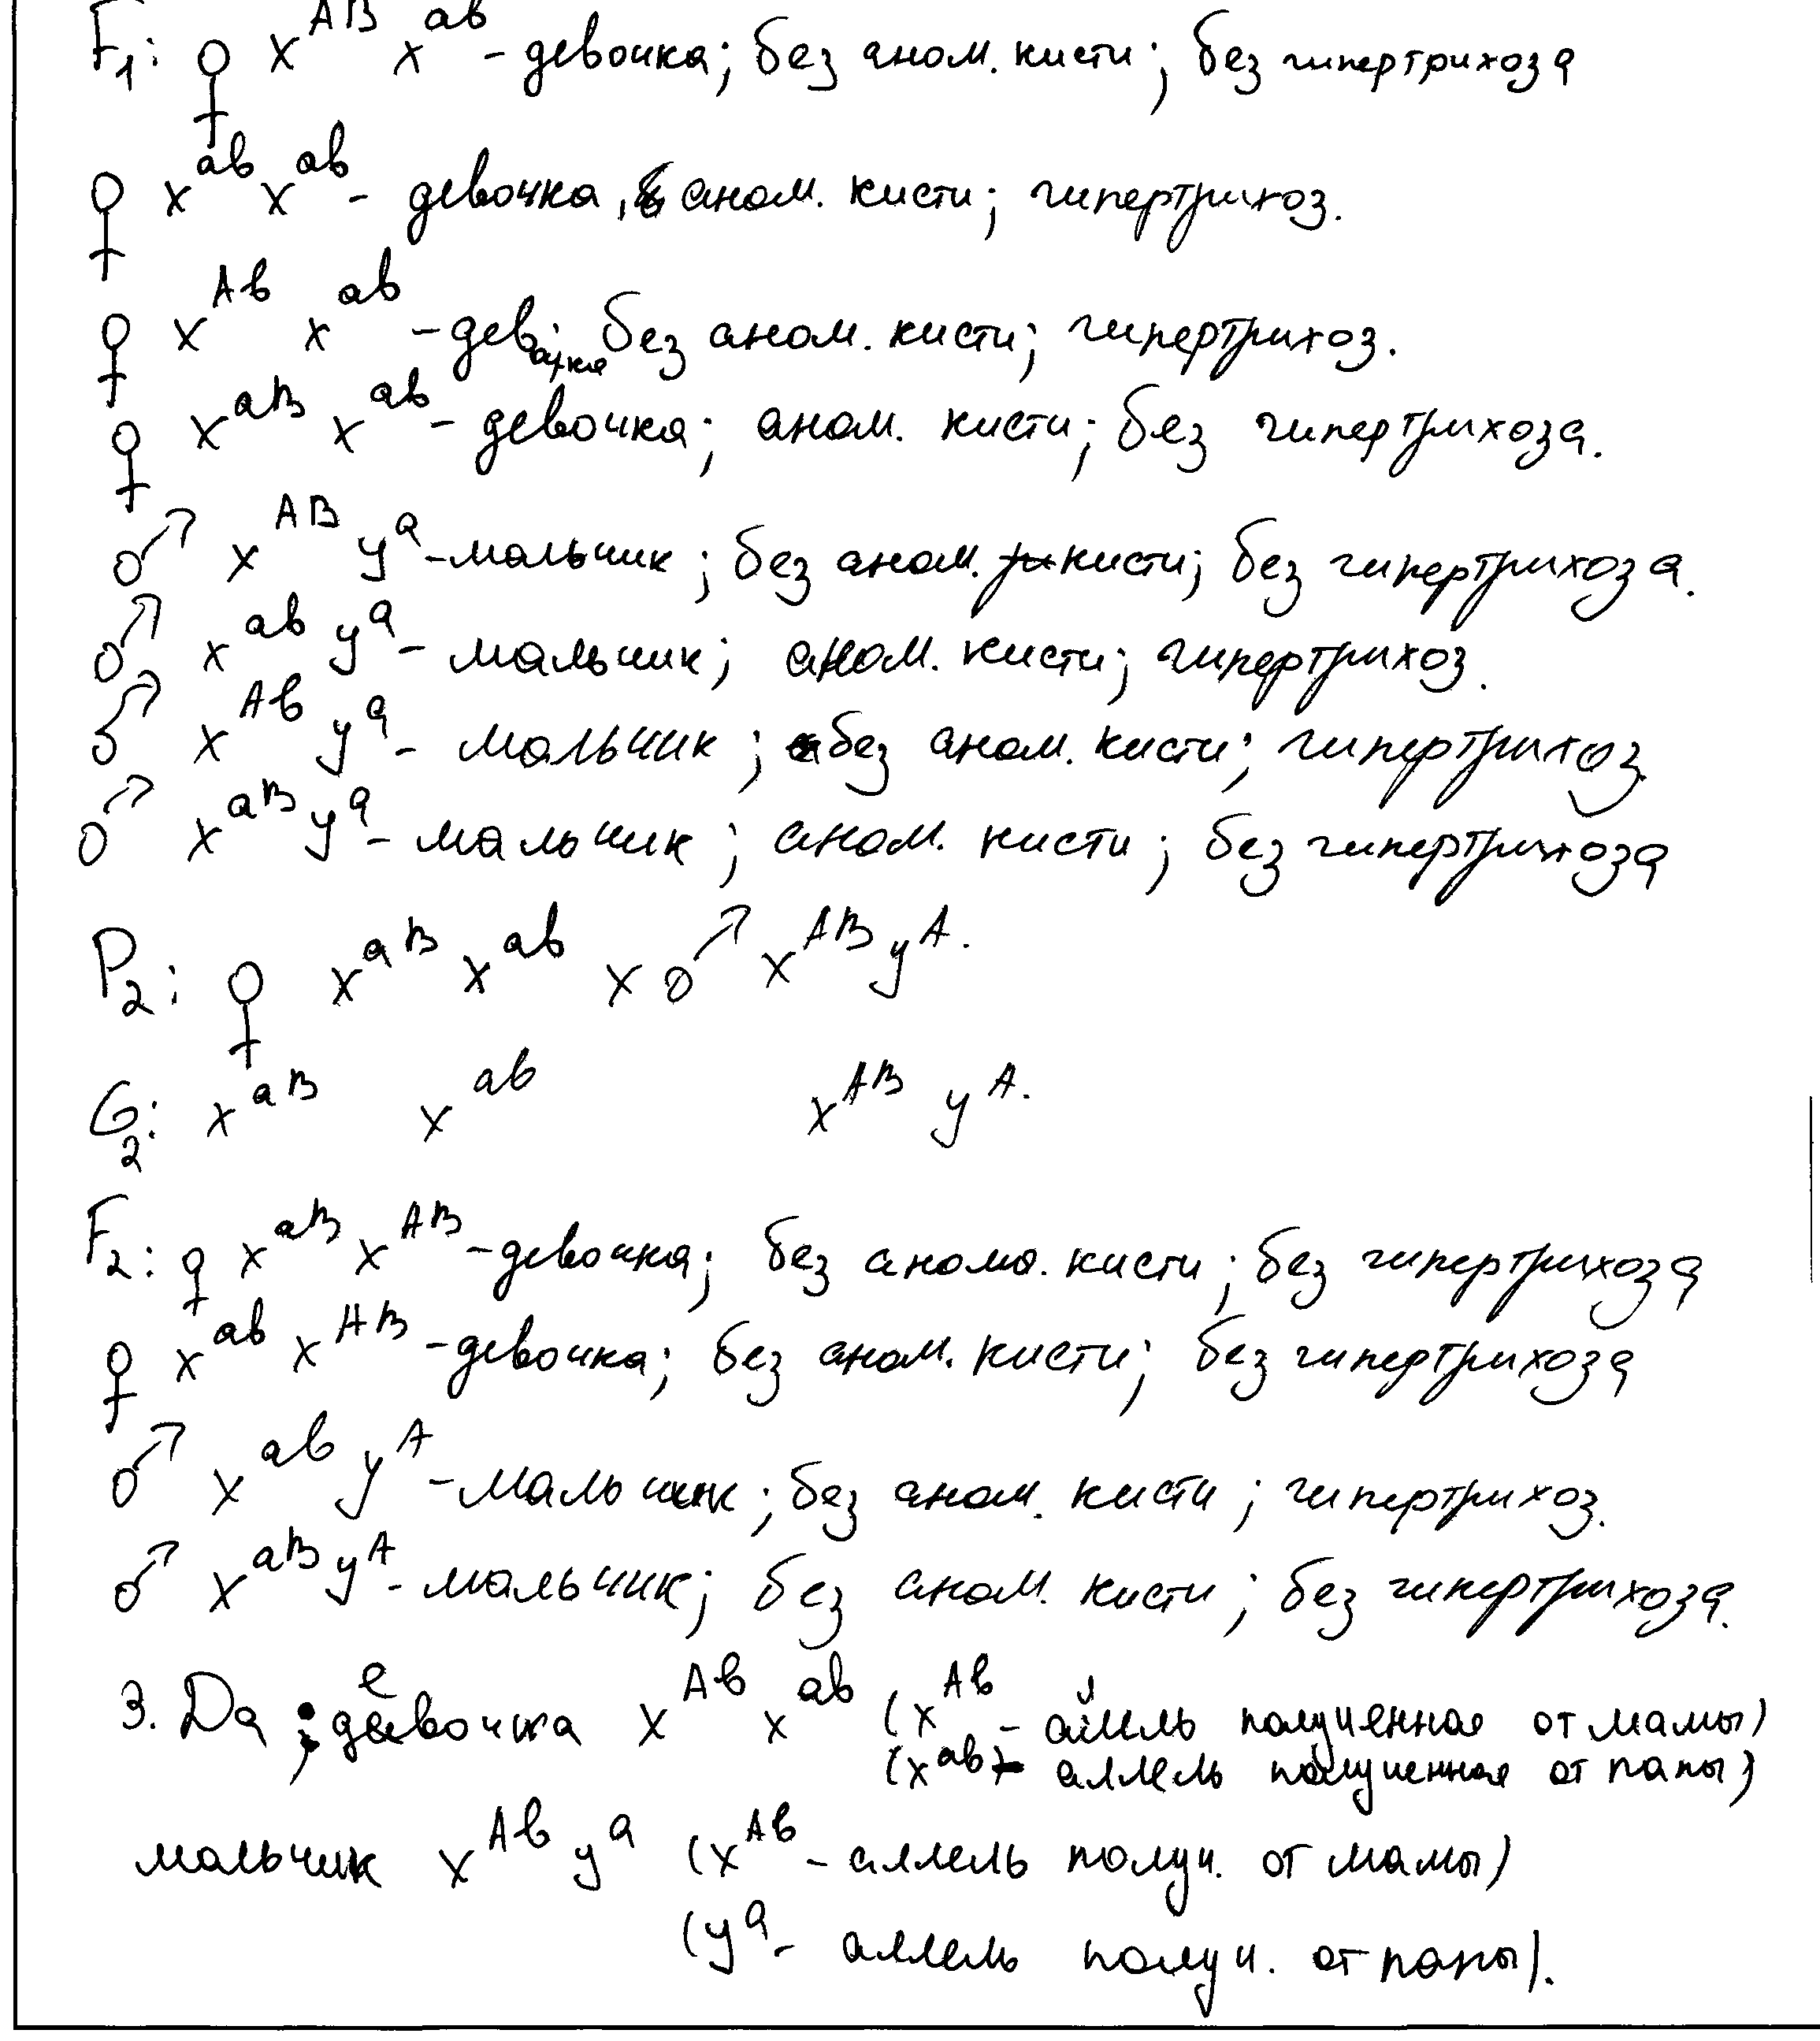 F₁: ♀ X^AB X^ab - девочка; без аном. кисти; без гипертрихоза
♀ X^ab X^ab - девочка, аном. кисти; гипертрихоз.
♀ X^Ab X^ab - девочка; без аном. кисти; гипертрихоз.
♀ X^aB X^ab - девочка; аном. кисти; без гипертрихоза.
♂ X^AB y^a - мальчик; без аном. кисти; без гипертрихоза.
♂ X^ab y^a - мальчик; аном. кисти; гипертрихоз.
♂ X^Ab y^a - мальчик; без аном. кисти; гипертрихоз.
♂ X^aB y^a - мальчик; аном. кисти; без гипертрихоза
P₂: ♀ X^aB X^ab x ♂ X^AB y^A.
G₂: X^aB X^ab X^AB y^A.
F₂: ♀ X^aB X^AB - девочка; без анома. кисти; без гипертрихоза
♀ X^ab X^AB - девочка; без аном. кисти; без гипертрихоза
♂ X^ab y^A - мальчик; без аном. кисти; гипертрихоз.
♂ X^aB y^A - мальчик; без аном. кисти; без гипертрихоза.
3. Да; девочка X^Ab X^ab (X^Ab - аллель полученная от мамы)
(X^ab - аллель полученная от папы)
мальчик X^Ab y^a (X^Ab - аллель получ. от мамы)
(y^a - аллель получ. от папы).